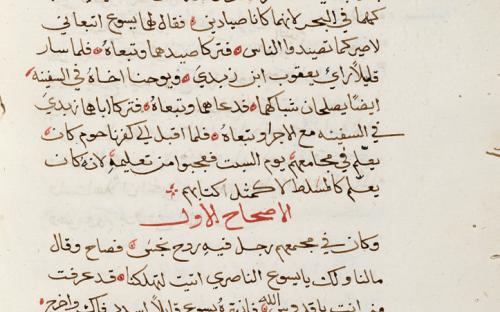 كبهما في البحر لانهما كانا صيادين فقال لهما يسوع اتبعاني
لاصيركما تصيدوا الناس فتركا صيدهما وتبعاه فلما سار
قليلا راي يعقوب ابن زبدي ويوحنا اخاه في السفينه
ايضا يصلحان شباكهما فدعاهما وتبعاه فتركا اباهما زبدي
في السفينه مع الاجرا وتبعاه فلما اقبل الي كفرناحوم كان
يعلم في مجامعهم يوم السبت فعجبوا من تعليمه لانه كان
يعلم كالمسلط لا كمثل اكتابهم
الاصحاح الاول
وكان في مجمعهم رجل فيه روح نجس فصاح وقال
مالنا ولك يا يسوع الناصري اتيت لتهلكنا قد عرفت
من انت يا قدوس الله فانتهره يسوع قايلا اسدد فاك واخرج